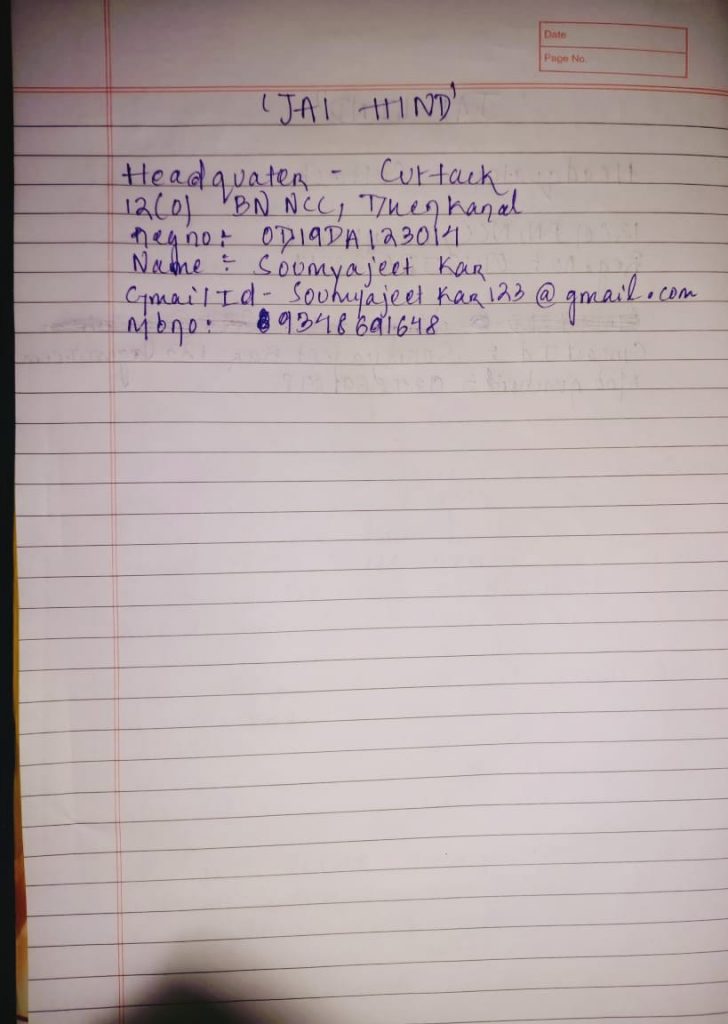 Date
Page No.
'JAI HIND'
Headquater - Cuttack
12(O) BN NCC, Dhenkanal
Regno: OD19DA123014
Name : Soumyajeet Kar
Gmail Id - Soumyajeet Kar123@gmail.com
Mbno: 9348691648